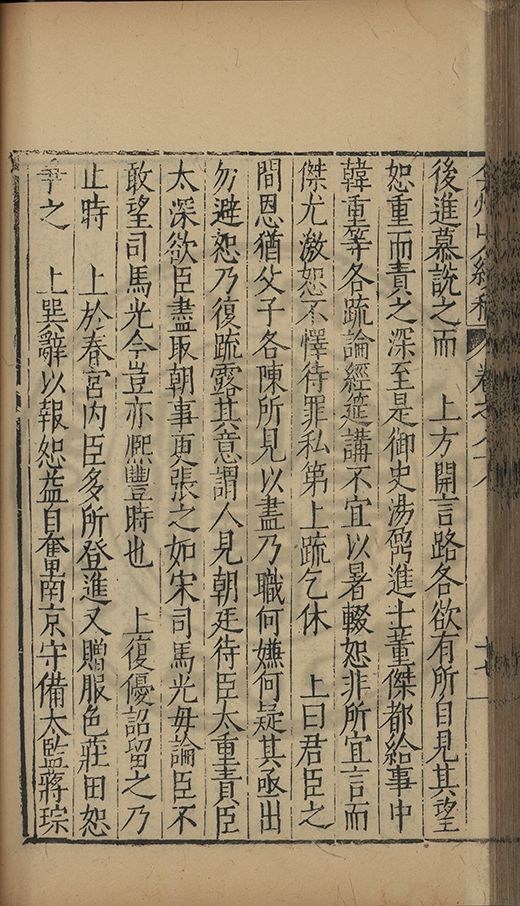 弇州山人續稿 卷之八十八 十七
後進慕說之而 上方開言路各欲有所自見其望
恕重而責之深至是御史湯鼐進士董傑都給事中
韓重等各疏論經筵講不宜以暑輟恕非所宜言而
傑尤激恕不懌待罪私第上疏乞休 上曰君臣之
間恩猶父子各陳所見以盡乃職何嫌何疑其亟出
勿避恕乃復疏露其意謂人見朝廷待臣太重責臣
太深欲臣盡取朝事更張之如宋司馬光毋論臣不
敢望司馬光今豈亦熙豐時也 上復優詔留之乃
止時 上於春宮內臣多所登進又贈服色莊田恕
爭之 上巽辭以報恕益自奮南京守備太監蔣琮